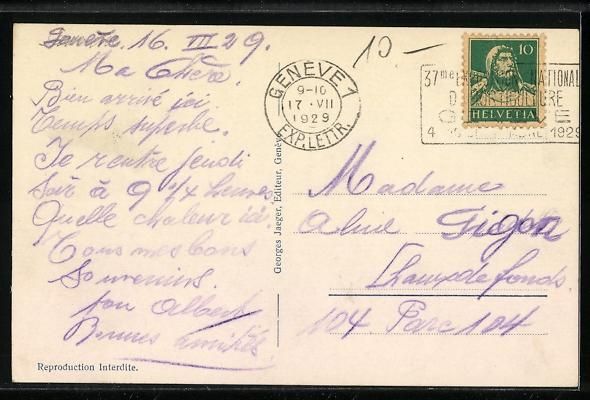 Genève. 16. VII 29.
Ma Chère.
Bien arrivé ici.
Temps superbe.
Je rentre jeudi
Soir à 9 1/4 heures
Quelle chaleur ici.
Tous mes bons
Souvenirs.
ton Albert
Bonnes amitiés
Reproduction Interdite.
Georges Jaeger, Editeur, Genève
10 -
GENÈVE 1
9-10
17·VII
1929
EXP. LETTR.
37me NATIONAL
4 1929
10
HELVETIA
Madame
Aline Pigon
Chaux de fonds
104 Parc 104